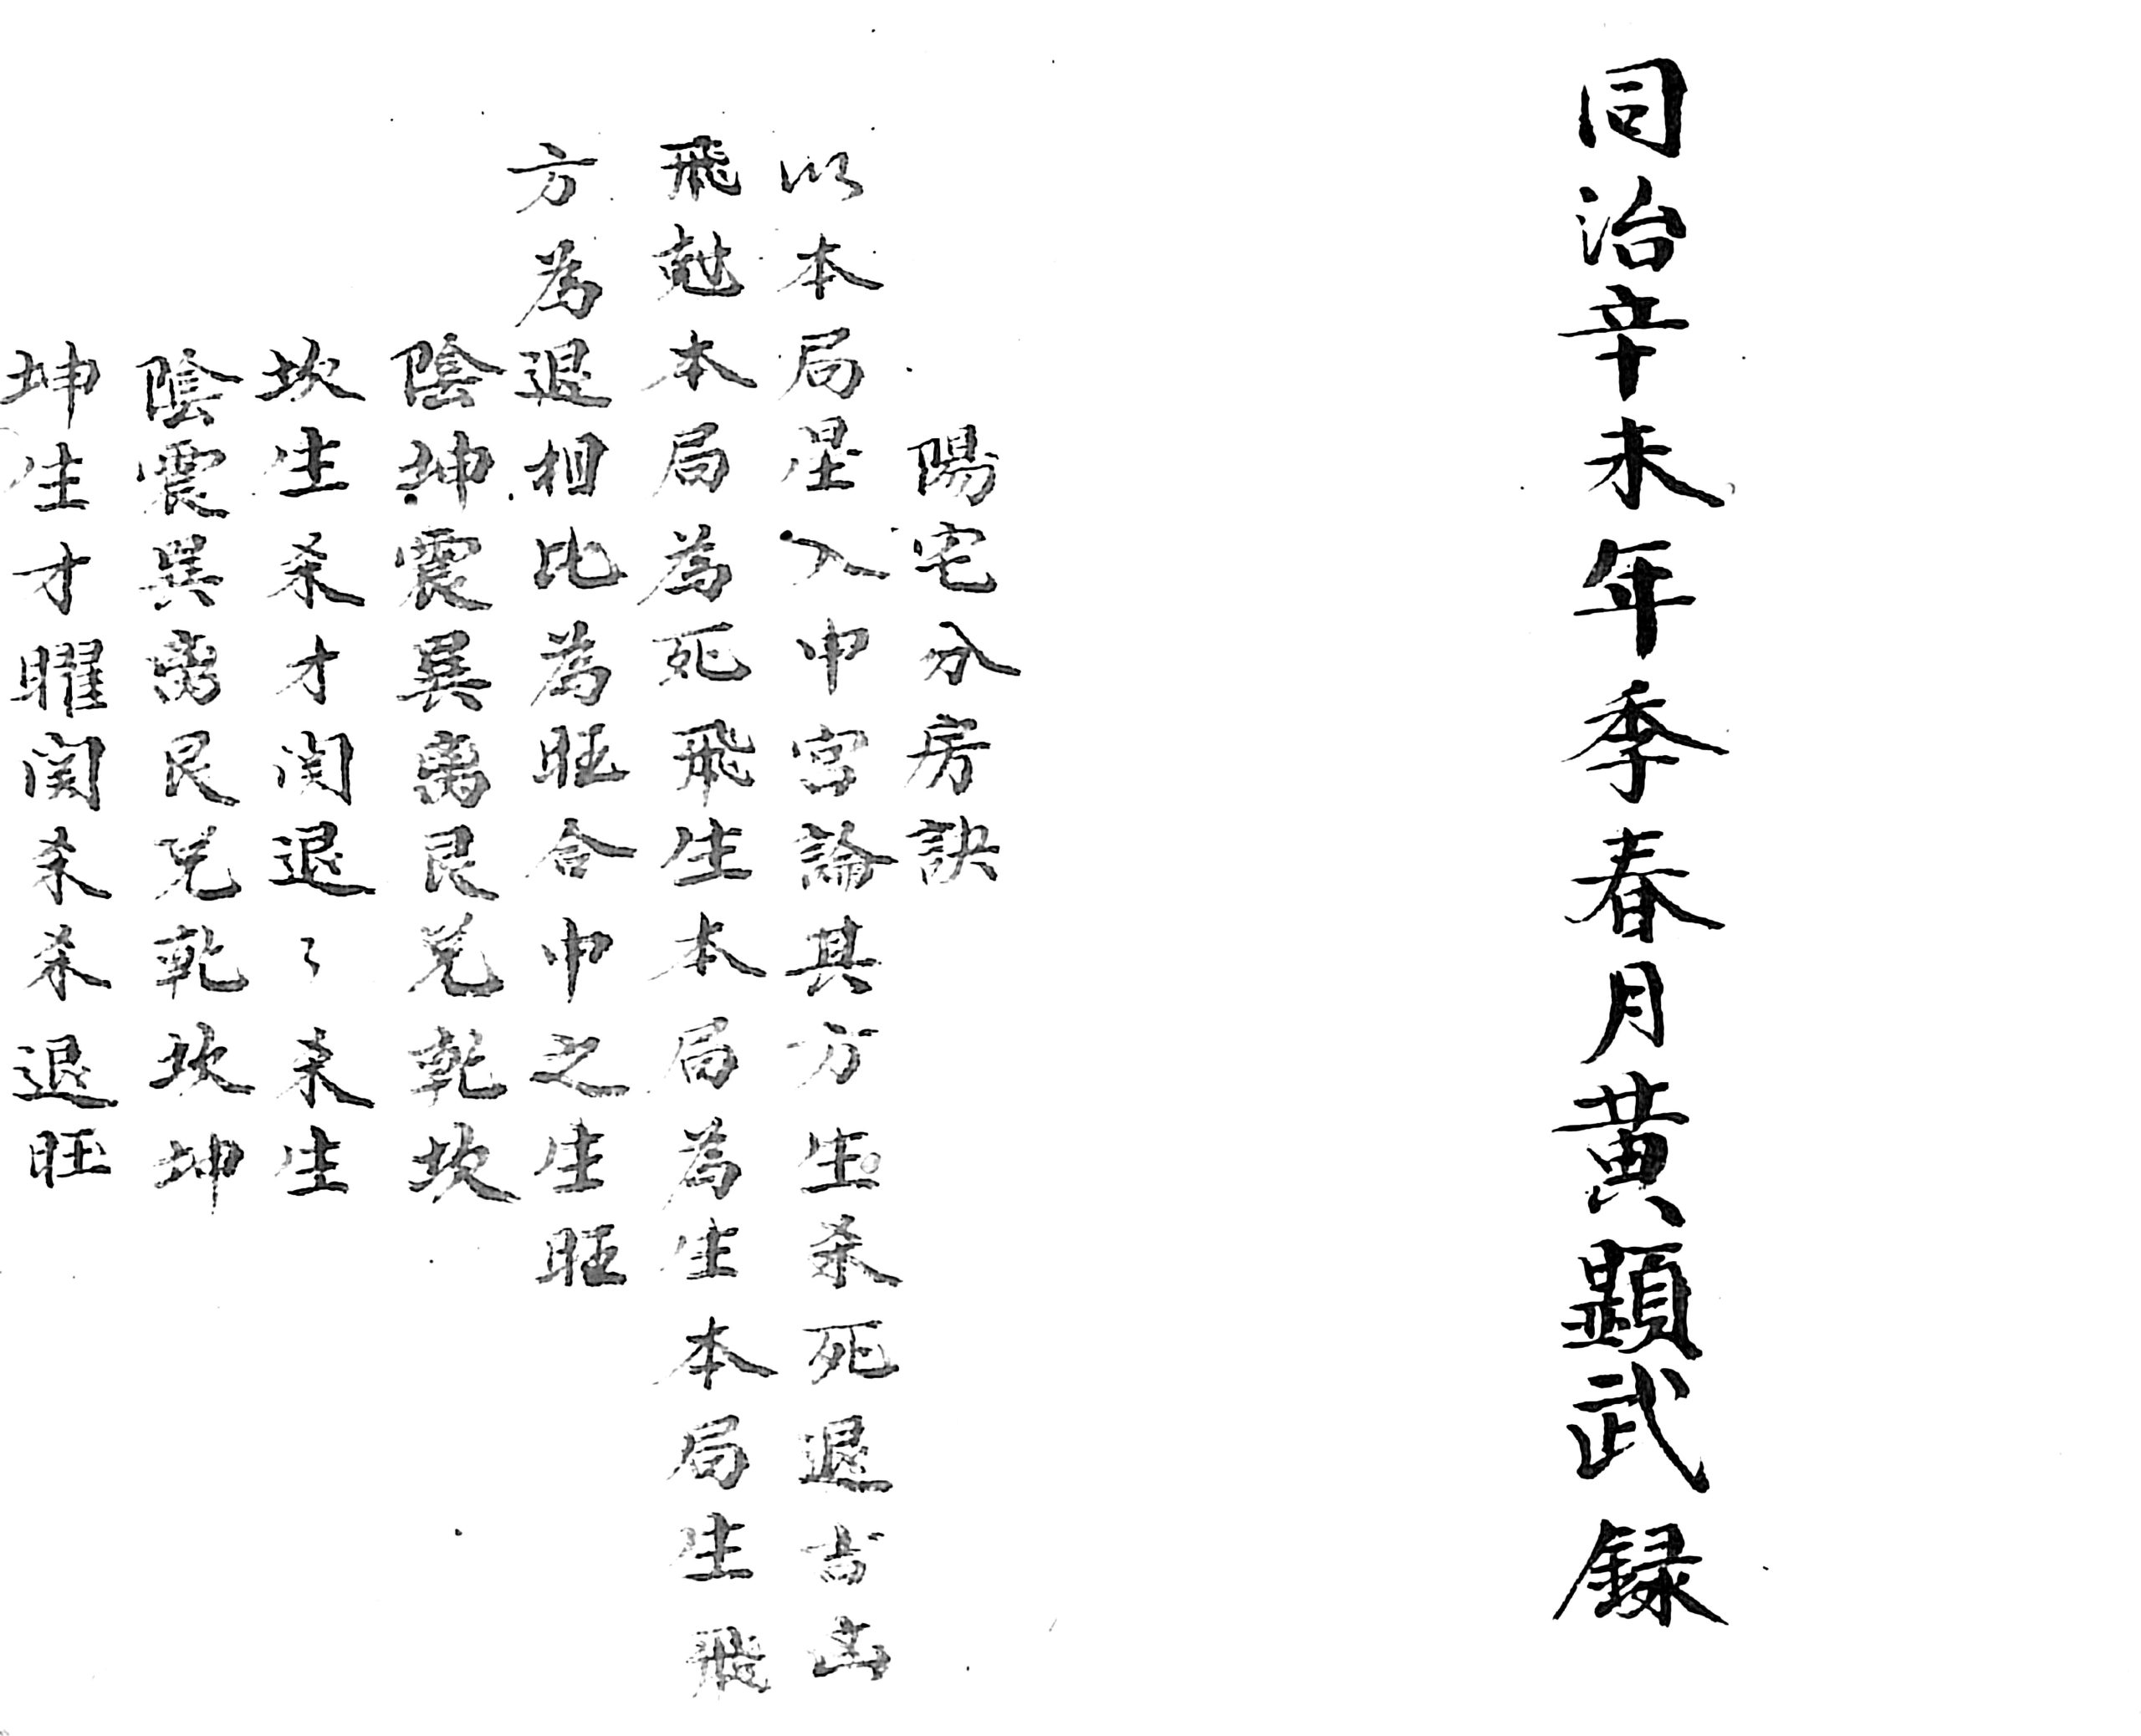 同治辛未年季春月黃顯武録
陽宅分房訣
以本局星入中宮論其方生杀死退吉凶
飛尅本局為死飛生本局為生本局生飛
方為退相比為旺合中之生旺
陰坤震巽离艮兑乾坎
坎生杀才関退々杀生
陰震巽离艮兑乾坎坤
坤生才曜関杀杀退旺